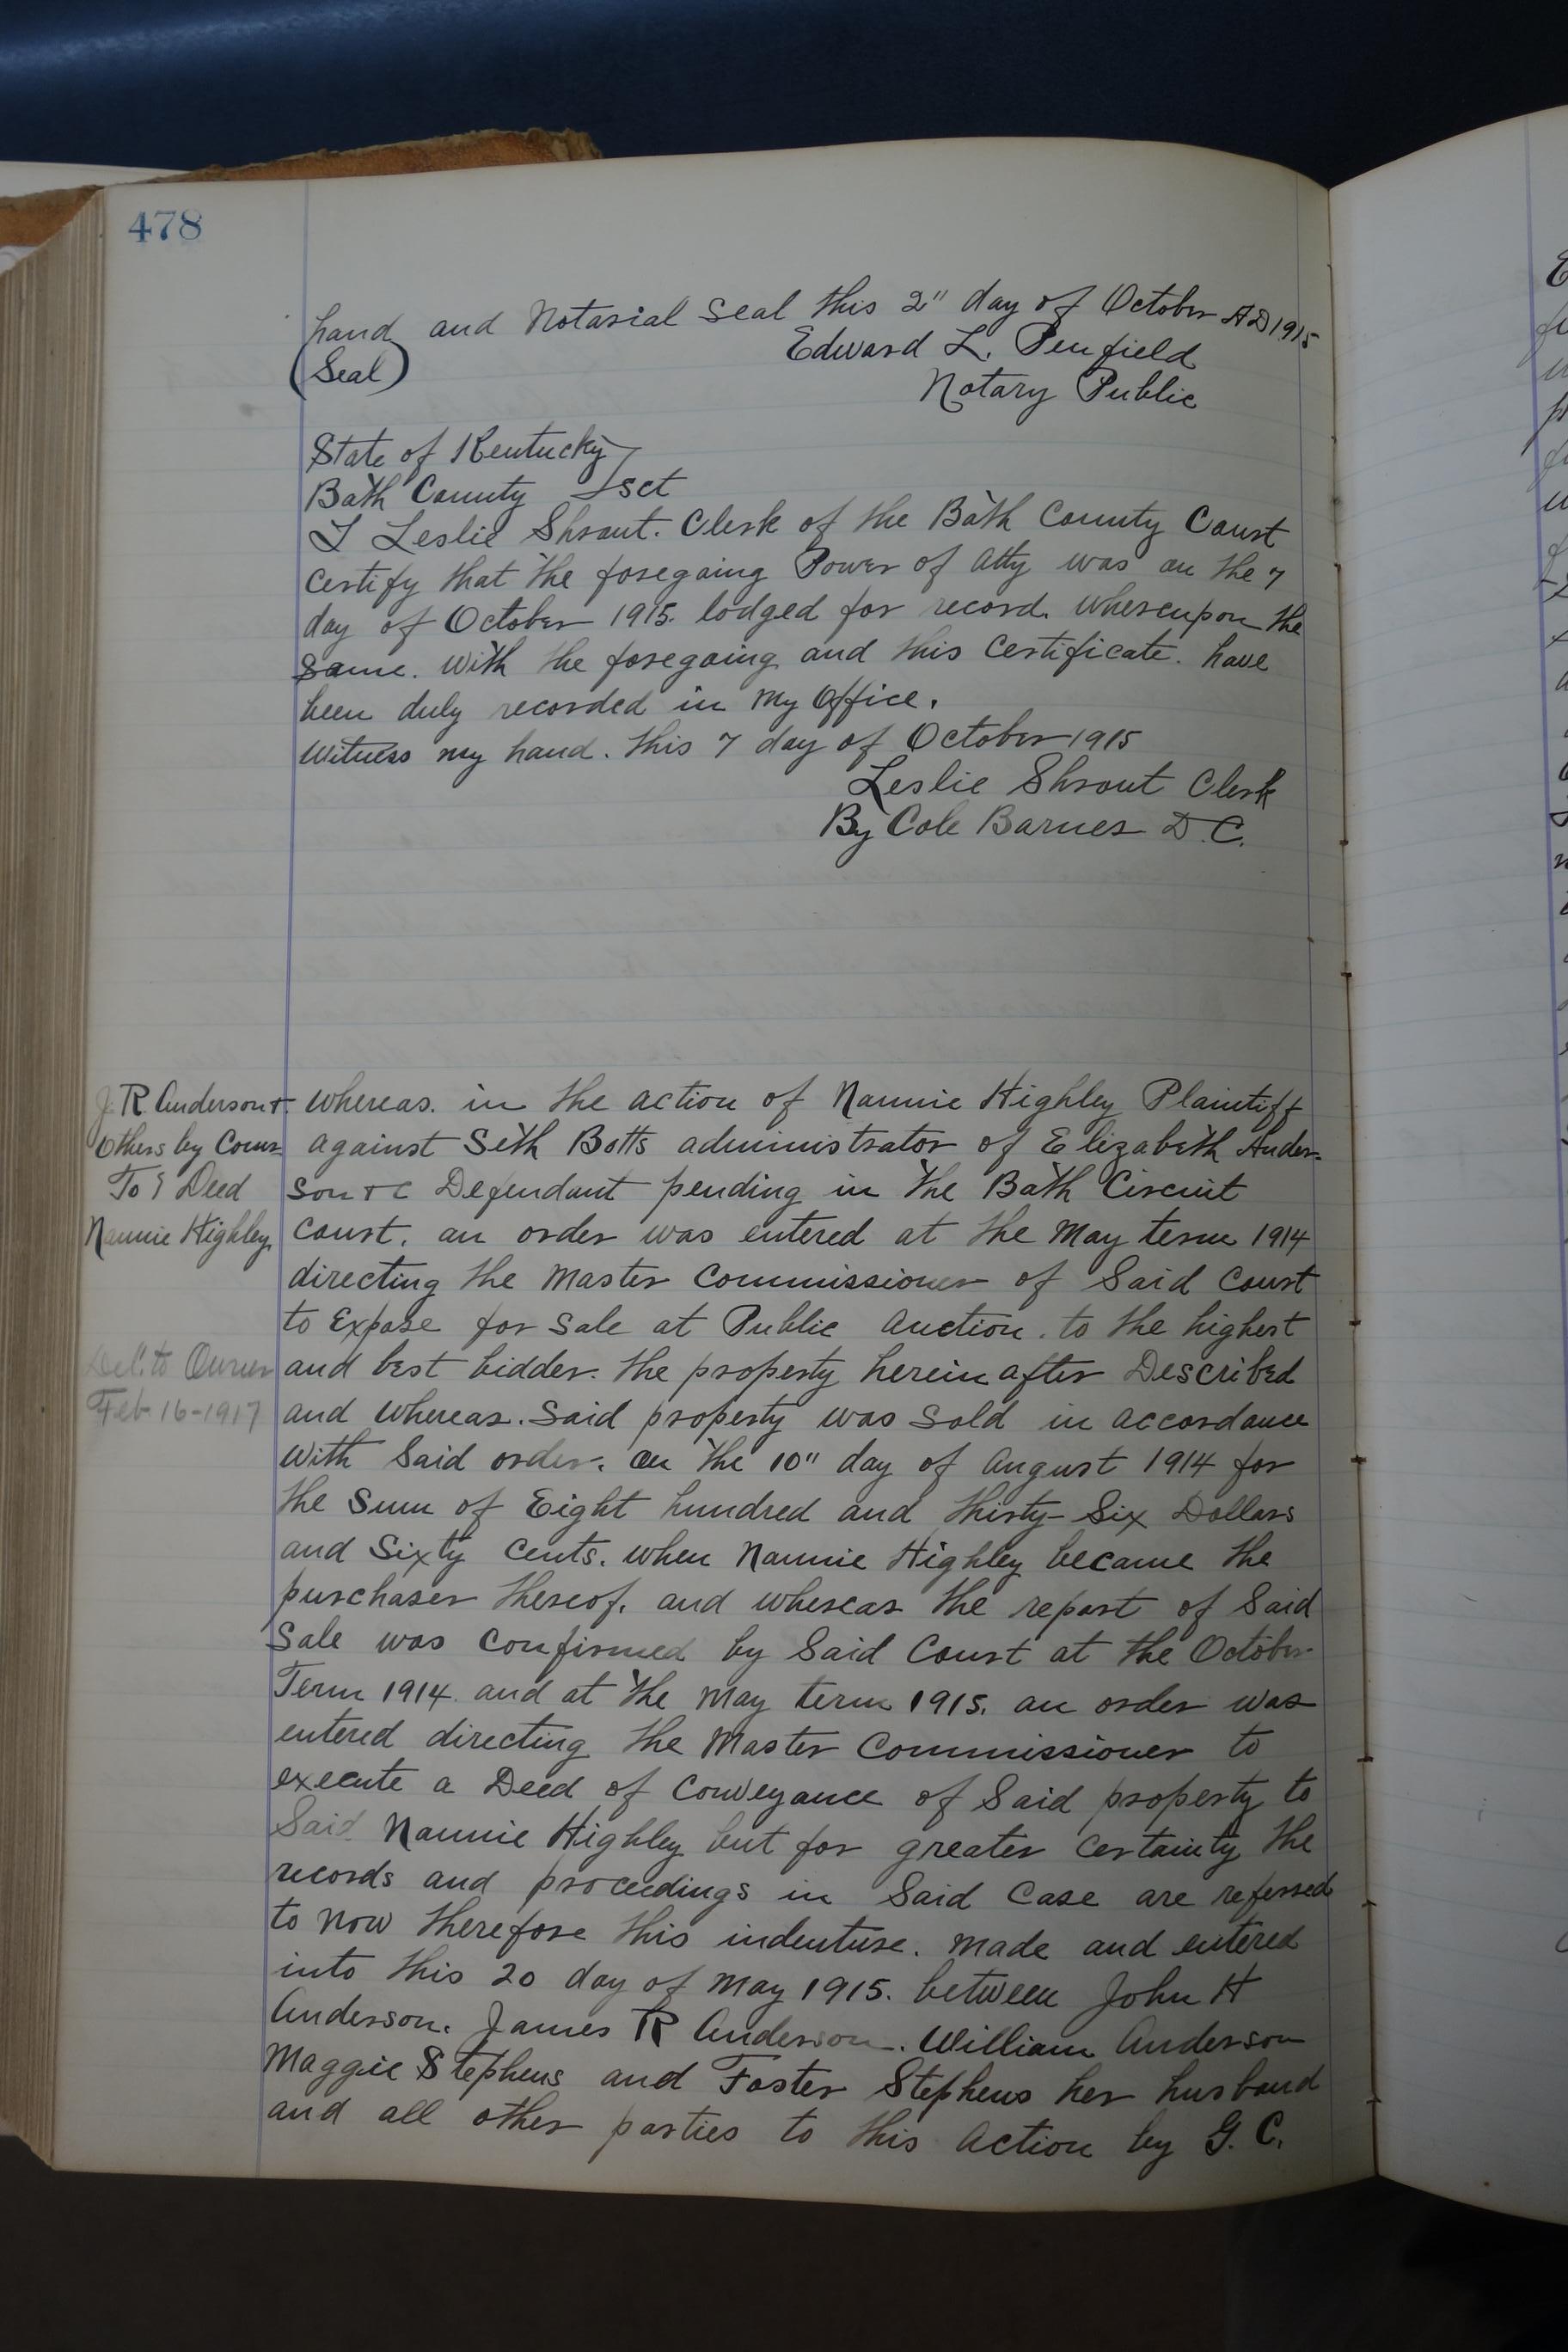 478
hand and Notarial Seal this 2" day of October AD 1915
(Seal) Edward L. Penfield
Notary Public
State of Kentucky
Bath County sct
I Leslie Shrout. Clerk of the Bath County Court
certify that the foregoing Power of Atty was on the 7
day of October 1915. lodged for record. whereupon the
same. with the foregoing and this certificate. have
been duly recorded in my office.
Witness my hand. this 7 day of October 1915
Leslie Shrout Clerk
By Cole Barnes D.C.
J. R. Anderson +
Others by Comr
To } Deed
Nannie Highley
Del. to Owner
Feb-16-1917
Whereas. in the action of Nannie Highley Plaintiff
against Seth Botts administrator of Elizabeth Ander-
son + c Defendant pending in the Bath Circuit
Court. an order was entered at the May term 1914
directing the Master Commissioner of Said Court
to Expose for Sale at Public Auction. to the highest
and best bidder. the property herein after Described
and whereas. Said property was Sold in accordance
with Said order. on the 10" day of August 1914 for
the Sum of Eight hundred and thirty-Six Dollars
and Sixty Cents. when Nannie Highley became the
purchaser thereof. and whereas the report of Said
Sale was confirmed by Said Court at the October
Term 1914. and at the May term 1915. an order was
entered directing the Master Commissioner to
execute a Deed of Conveyance of Said property to
Said Nannie Highley but for greater certainty the
records and proceedings in Said Case are referred
to now therefore this indenture. made and entered
into this 20 day of May 1915. between John H
Anderson. James R Anderson. William Anderson
Maggie Stephens and Foster Stephens her husband
and all other parties to this Action by G. C.